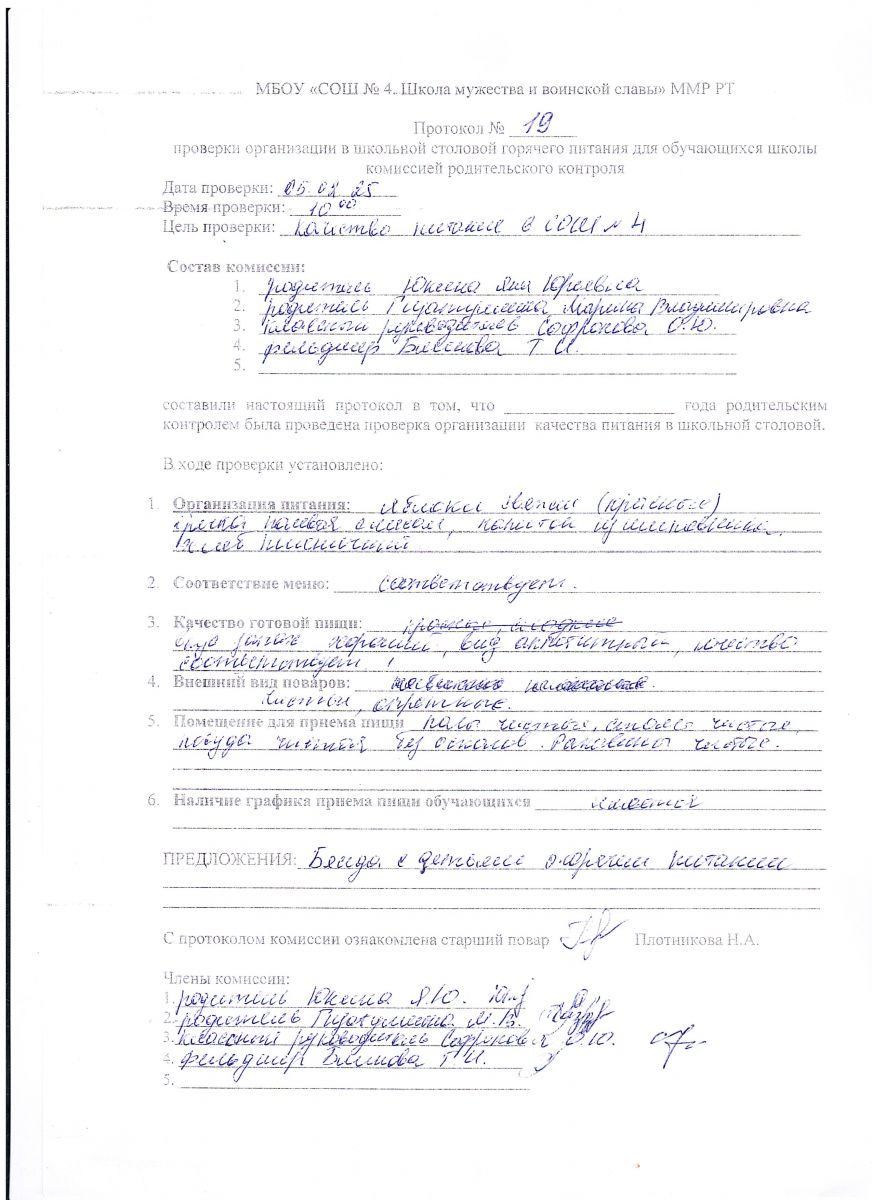 МБОУ «СОШ № 4. Школа мужества и воинской славы» ММР РТ
Протокол № 19
проверки организации в школьной столовой горячего питания для обучающихся школы
комиссией родительского контроля
Дата проверки: 05.02 25
Время проверки: 10 00
Цель проверки: Качество питания в СОШ № 4
Состав комиссии:
1. родитель Юкина Яна Юрьевна
2. родитель Марина Владимировна
3. Классный руководитель Сафронова О.Ю.
4. фельдшер Блинова Т И.
5.
составили настоящий протокол в том, что года родительским
контролем была проведена проверка организации качества питания в школьной столовой.
В ходе проверки установлено:
1. Организация питания: яблоки свежие
с мясом, напиток из шиповника,
хлеб пшеничный
2. Соответствие меню: соответствует.
3. Качество готовой пищи:
запах хороший, вид аппетитный, качество
соответствует !
4. Внешний вид поваров:
Чистый, опрятные.
5. Помещение для приема пищи полы чистые, столы чистые,
посуда чистая без сколов. Раковины чистые.
6. Наличие графика приема пищи обучающихся имеется
ПРЕДЛОЖЕНИЯ: Беседа с детьми о горячем питании
С протоколом комиссии ознакомлена старший повар Плотникова Н.А.
Члены комиссии:
1. родитель Юкина Я.Ю.
2. родитель М.В.
3. Классный руководитель Сафронова О.Ю.
4. Фельдшер Блинова Т И.
5.